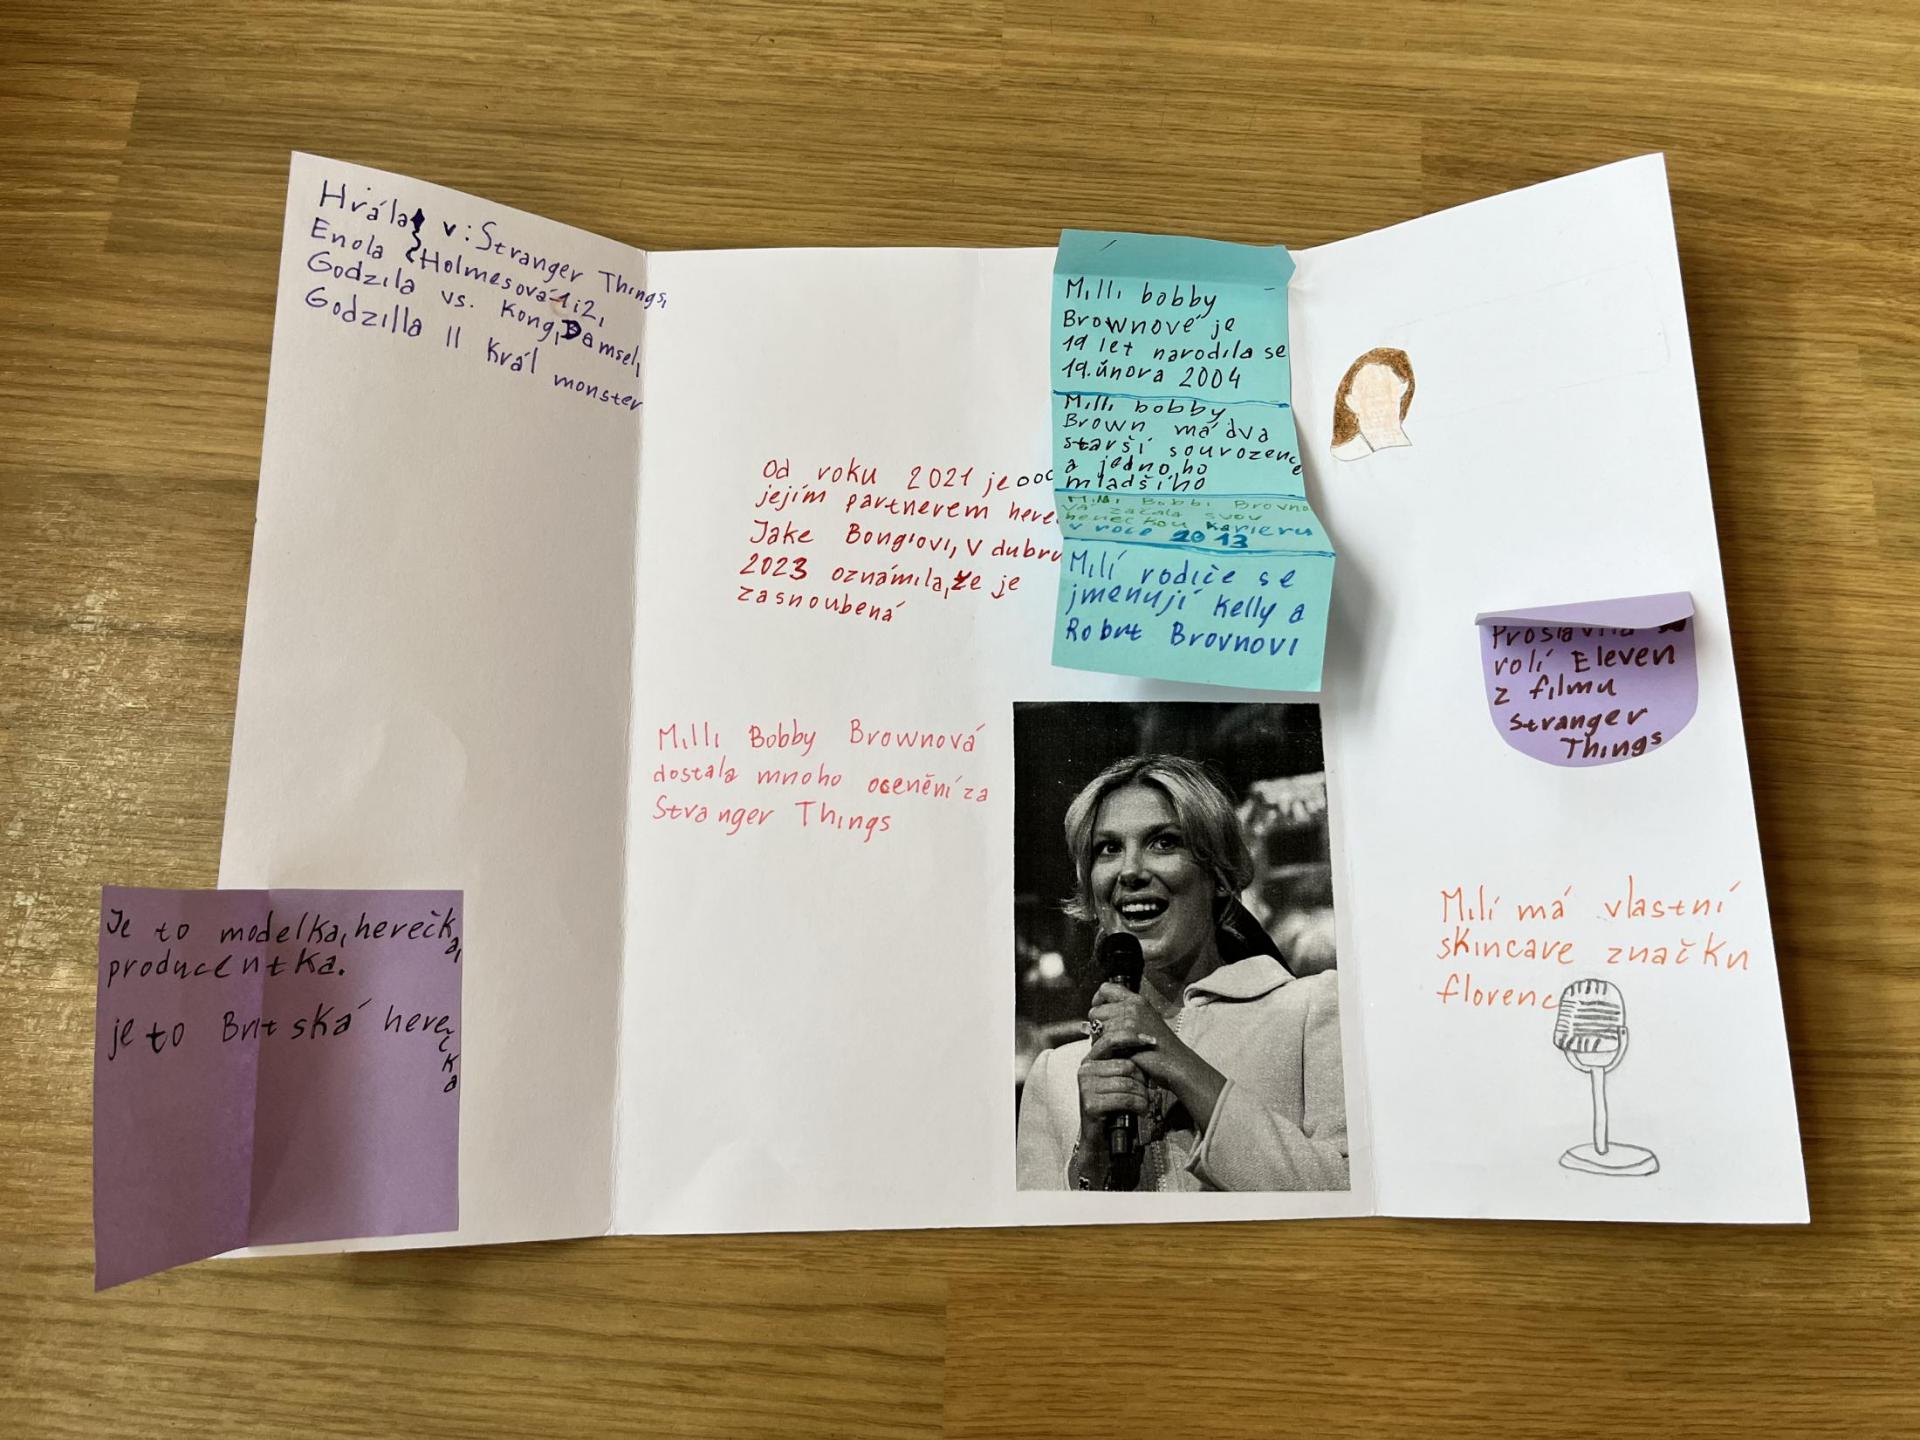 Hrála v: Stranger Things,
Enola Holmesová 1i2,
Godzila vs. Kong, Damsel,
Godzilla II Král monster
Je to modelka, herečka,
producentka.
je to Britská herečka
Od roku 2021 je
jejím partnerem
Jake Bongiovi, V dubnu
2023 oznámila, že je
zasnoubená
Milli Bobby Brownová
dostala mnoho ocenění za
Stranger Things
Milli bobby
Brownové je
19 let narodila se
19. února 2004
Milli bobby
Brown má dva
starší sourozence
a jednoho
mladšího
Milli Bobbi Brovno
vá začala svou
hereckou karieru
v roce 2013
Milí rodiče se
jmenují Kelly a
Robrt Brovnovi
Proslavila se
rolí Eleven
z filmu
Stranger
Things
Milí má vlastní
skincare značku
florenc